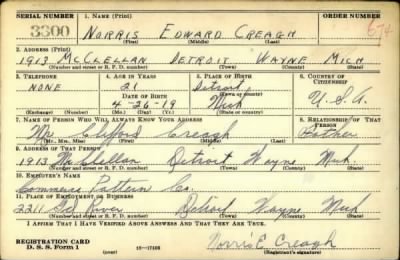 SERIAL NUMBER 1. NAME (Print)
3300 NORRIS EDWARD CREAGH 674
(First) (Middle) (Last)
2. ADDRESS (Print)
1913 McCLELLAN DETROIT WAYNE MICH
(Number and street or R. F. D. number) (Town) (County) (State)
3. TELEPHONE 4. AGE IN YEARS 5. PLACE OF BIRTH 6. COUNTRY OF CITIZENSHIP
NONE 21 Detroit
DATE OF BIRTH (Town or county)
4-26-19 Mich U.S.A.
(Exchange) (Number) (Mo.) (Day) (Yr.) (State or country)
7. NAME OF PERSON WHO WILL ALWAYS KNOW YOUR ADDRESS 8. RELATIONSHIP OF THAT PERSON
Mr. Clifford Creagh Father
(Mr., Mrs., Miss) (First) (Middle) (Last)
9. ADDRESS OF THAT PERSON
1913 McClellan Detroit Wayne Mich.
(Number and street or R. F. D. number) (Town) (County) (State)
10. EMPLOYER'S NAME
Commerce Pattern Co.
11. PLACE OF EMPLOYMENT OR BUSINESS
2211 Gd River Detroit Wayne Mich
(Number and street or R. F. D. number) (Town) (County) (State)
I AFFIRM THAT I HAVE VERIFIED ABOVE ANSWERS AND THAT THEY ARE TRUE.
REGISTRATION CARD
D. S. S. Form 1 (over) 16—17105 Norris E. Creagh
(Registrant's signature)